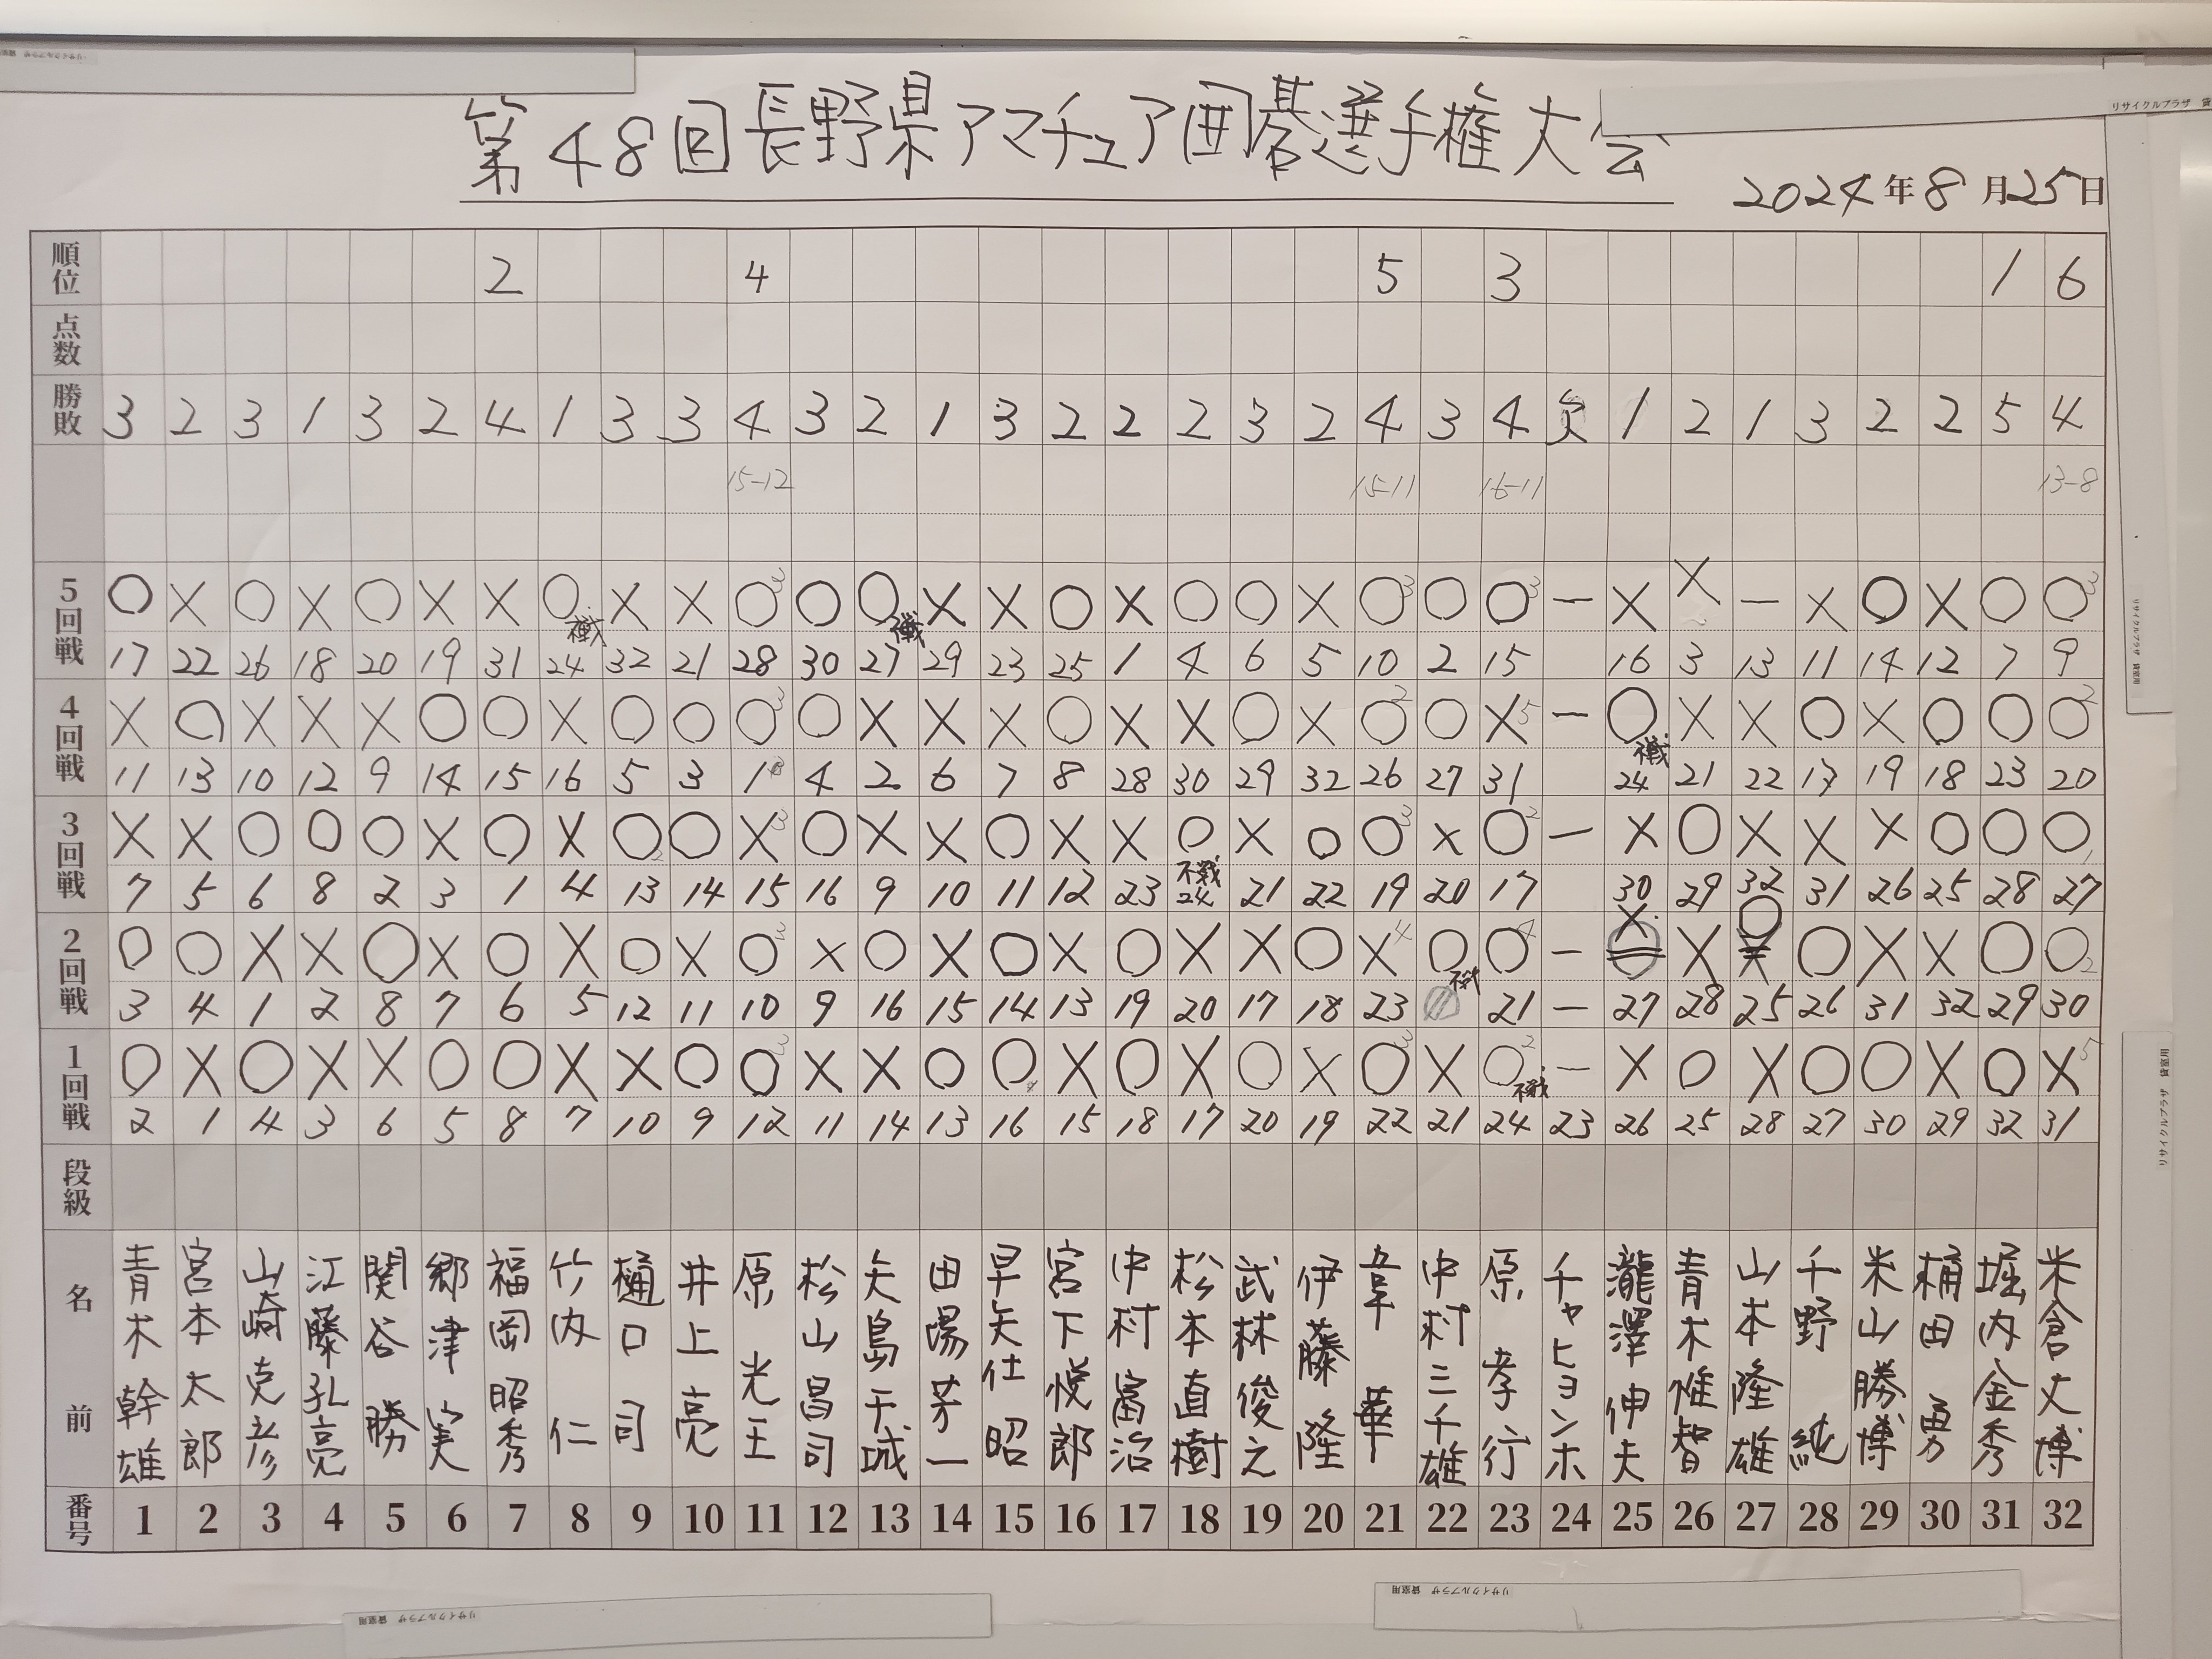 第48回長野県アマチュア囲碁選手権大会
2024年8月25日
順位 2 4 5 3 1 6
点数
勝敗 3 2 3 1 3 2 4 1 3 3 4 3 2 1 3 2 2 2 3 2 4 3 4 欠 1 2 1 3 2 2 5 4
15-12 15-11 16-11 13-8
5回戦 ○ × ○ × ○ × × ○ × × ○3 ○ ○ × × ○ × ○ ○ × ○3 ○ ○3 — × × — × ○ × ○ ○3
不戦 不戦
17 22 26 18 20 19 31 24 32 21 28 30 27 29 23 25 1 4 6 5 10 2 15 16 3 13 11 14 12 7 9
4回戦 × ○ × × × ○ ○ × ○ ○ ○3 ○ × × × ○ × × ○ × ○2 ○ ×5 — ○ × × ○ × ○ ○ ○2
不戦
11 13 10 12 9 14 15 16 5 3 1 4 2 6 7 8 28 30 29 32 26 27 31 24 21 22 17 19 18 23 20
3回戦 × × ○ ○ ○ × ○ × ○2 ○ ×3 ○ × × ○ × × ○ × ○ ○3 × ○2 — × ○ × × × ○ ○ ○1
不戦
7 5 6 8 2 3 1 4 13 14 15 16 9 10 11 12 23 24 21 22 19 20 17 30 29 32 31 26 25 28 27
2回戦 ○ ○ × × ○ × ○ × ○ × ○3 × ○ × ○ × ○ × × ○ ×4 ○ ○4 — × × ○ ○ × × ○ ○2
不戦
3 4 1 2 8 7 6 5 12 11 10 9 16 15 14 13 19 20 17 18 23 21 — 27 28 25 26 31 32 29 30
1回戦 ○ × ○ × × ○ ○ × × ○ ○3 × × ○ ○ × ○ × ○ × ○3 × ○2 — × ○ × ○ ○ × ○ ×5
不戦
2 1 4 3 6 5 8 7 10 9 12 11 14 13 16 15 18 17 20 19 22 21 24 23 26 25 28 27 30 29 32 31
段級
名前 青木幹雄 宮本太郎 山崎克彦 江藤孔亮 関谷勝 郷津実 福岡昭秀 竹内仁 樋口司 井上亮 原光王 松山昌司 矢島千城 田陽芳一 早矢仕昭 宮下悦郎 中村富治 松本直樹 武林俊之 伊藤隆 韋華 中村三千雄 原孝行 チャヒョンホ 瀧澤伸夫 青木惟智 山本隆雄 千野純 米山勝博 桶田勇 堀内金秀 米倉丈博
番号 1 2 3 4 5 6 7 8 9 10 11 12 13 14 15 16 17 18 19 20 21 22 23 24 25 26 27 28 29 30 31 32
リサイクルプラザ 貸室用
リサイクルプラザ 貸
リサイクルプラザ 貸室用
リサイクルプラザ 貸室用
リサイクルプラザ 貸室用
リサイクルプラザ 貸室用